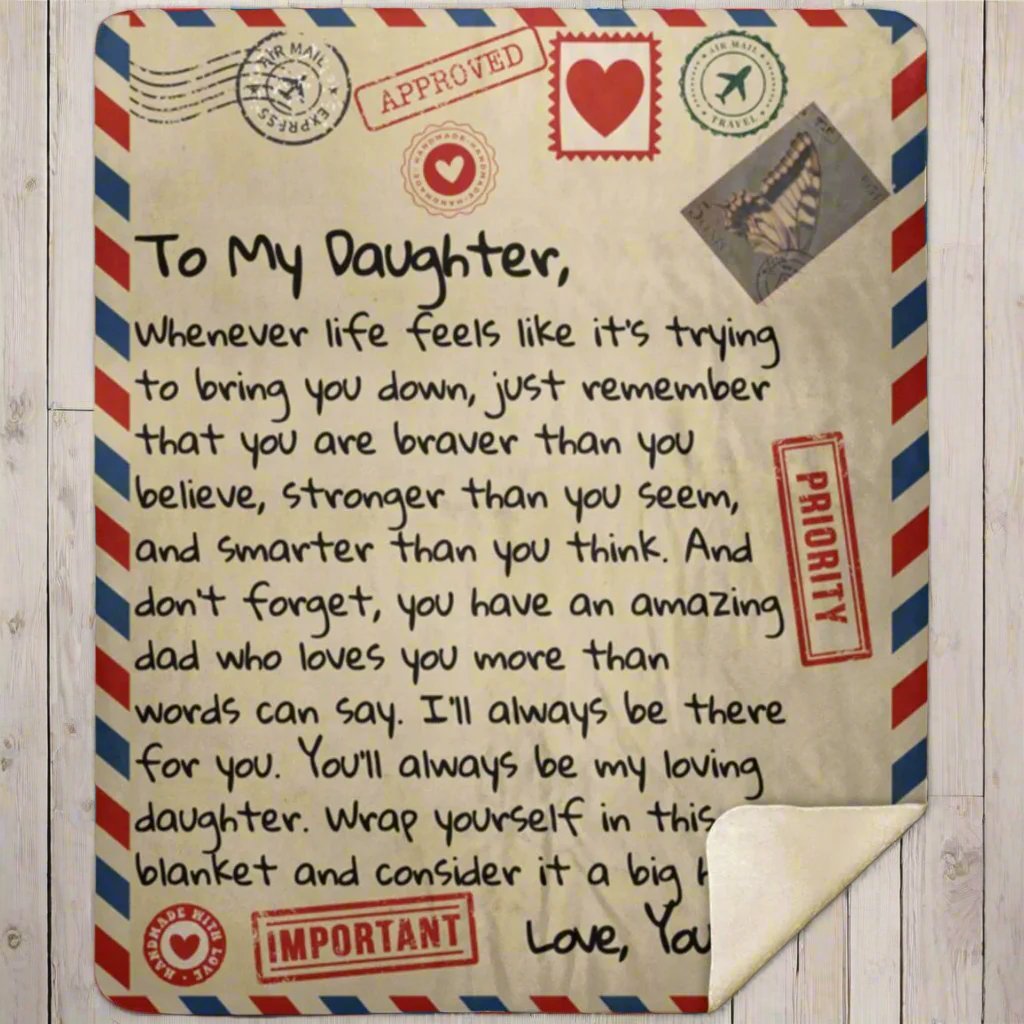 AIR MAIL
EXPRESS
APPROVED
AIR MAIL
TRAVEL
HANDMADE · HANDMADE · HANDMADE
To My Daughter,
Whenever life feels like it's trying
to bring you down, just remember
that you are braver than you
believe, stronger than you seem,
and smarter than you think. And
don't forget, you have an amazing
dad who loves you more than
words can say. I'll always be there
for you. You'll always be my loving
daughter. Wrap yourself in this
blanket and consider it a big
PRIORITY
HANDMADE WITH LOVE
IMPORTANT
Love,